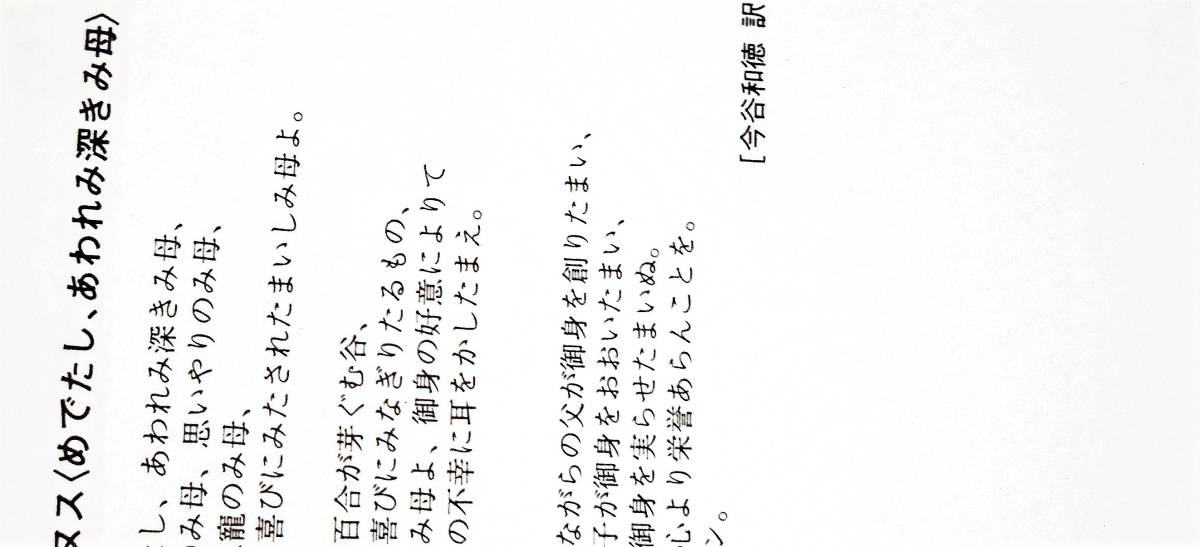 ヌス〈めでたし、あわれみ深きみ母〉
し、あわれみ深きみ母、
み母、思いやりのみ母、
寵のみ母、
喜びにみたされたまいしみ母よ。
百合が芽ぐむ谷、
喜びにみなぎりたるもの、
み母よ、御身の好意によりて
の不幸に耳をかしたまえ。
ながらの父が御身を創りたまい、
子が御身をおおいたまい、
御身を実らせたまいぬ。
心より栄誉あらんことを。
ン。
[今谷和徳 訳